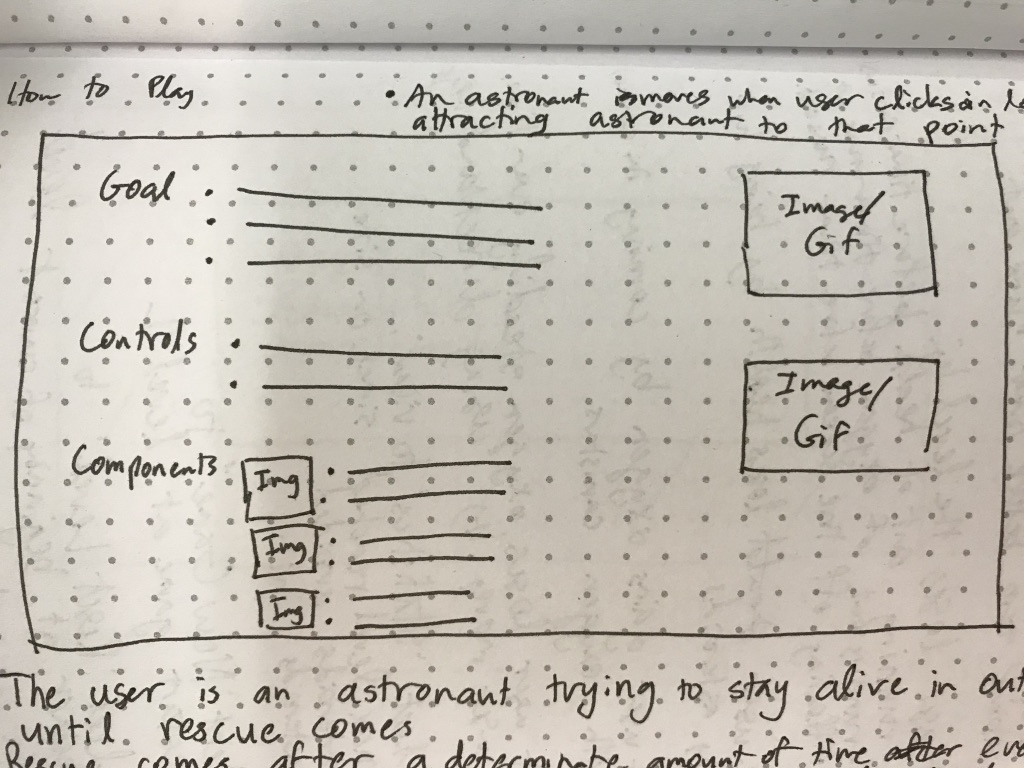 How to Play
• An astronant moves when user clicks in
attracting astronant to that point
Goal
Image/
Gif
Controls
Image/
Gif
Components
Img
Img
Img
The user is an astronant trying to stay alive in out
until rescue comes
Rescue comes after a determinate amount of time after eve